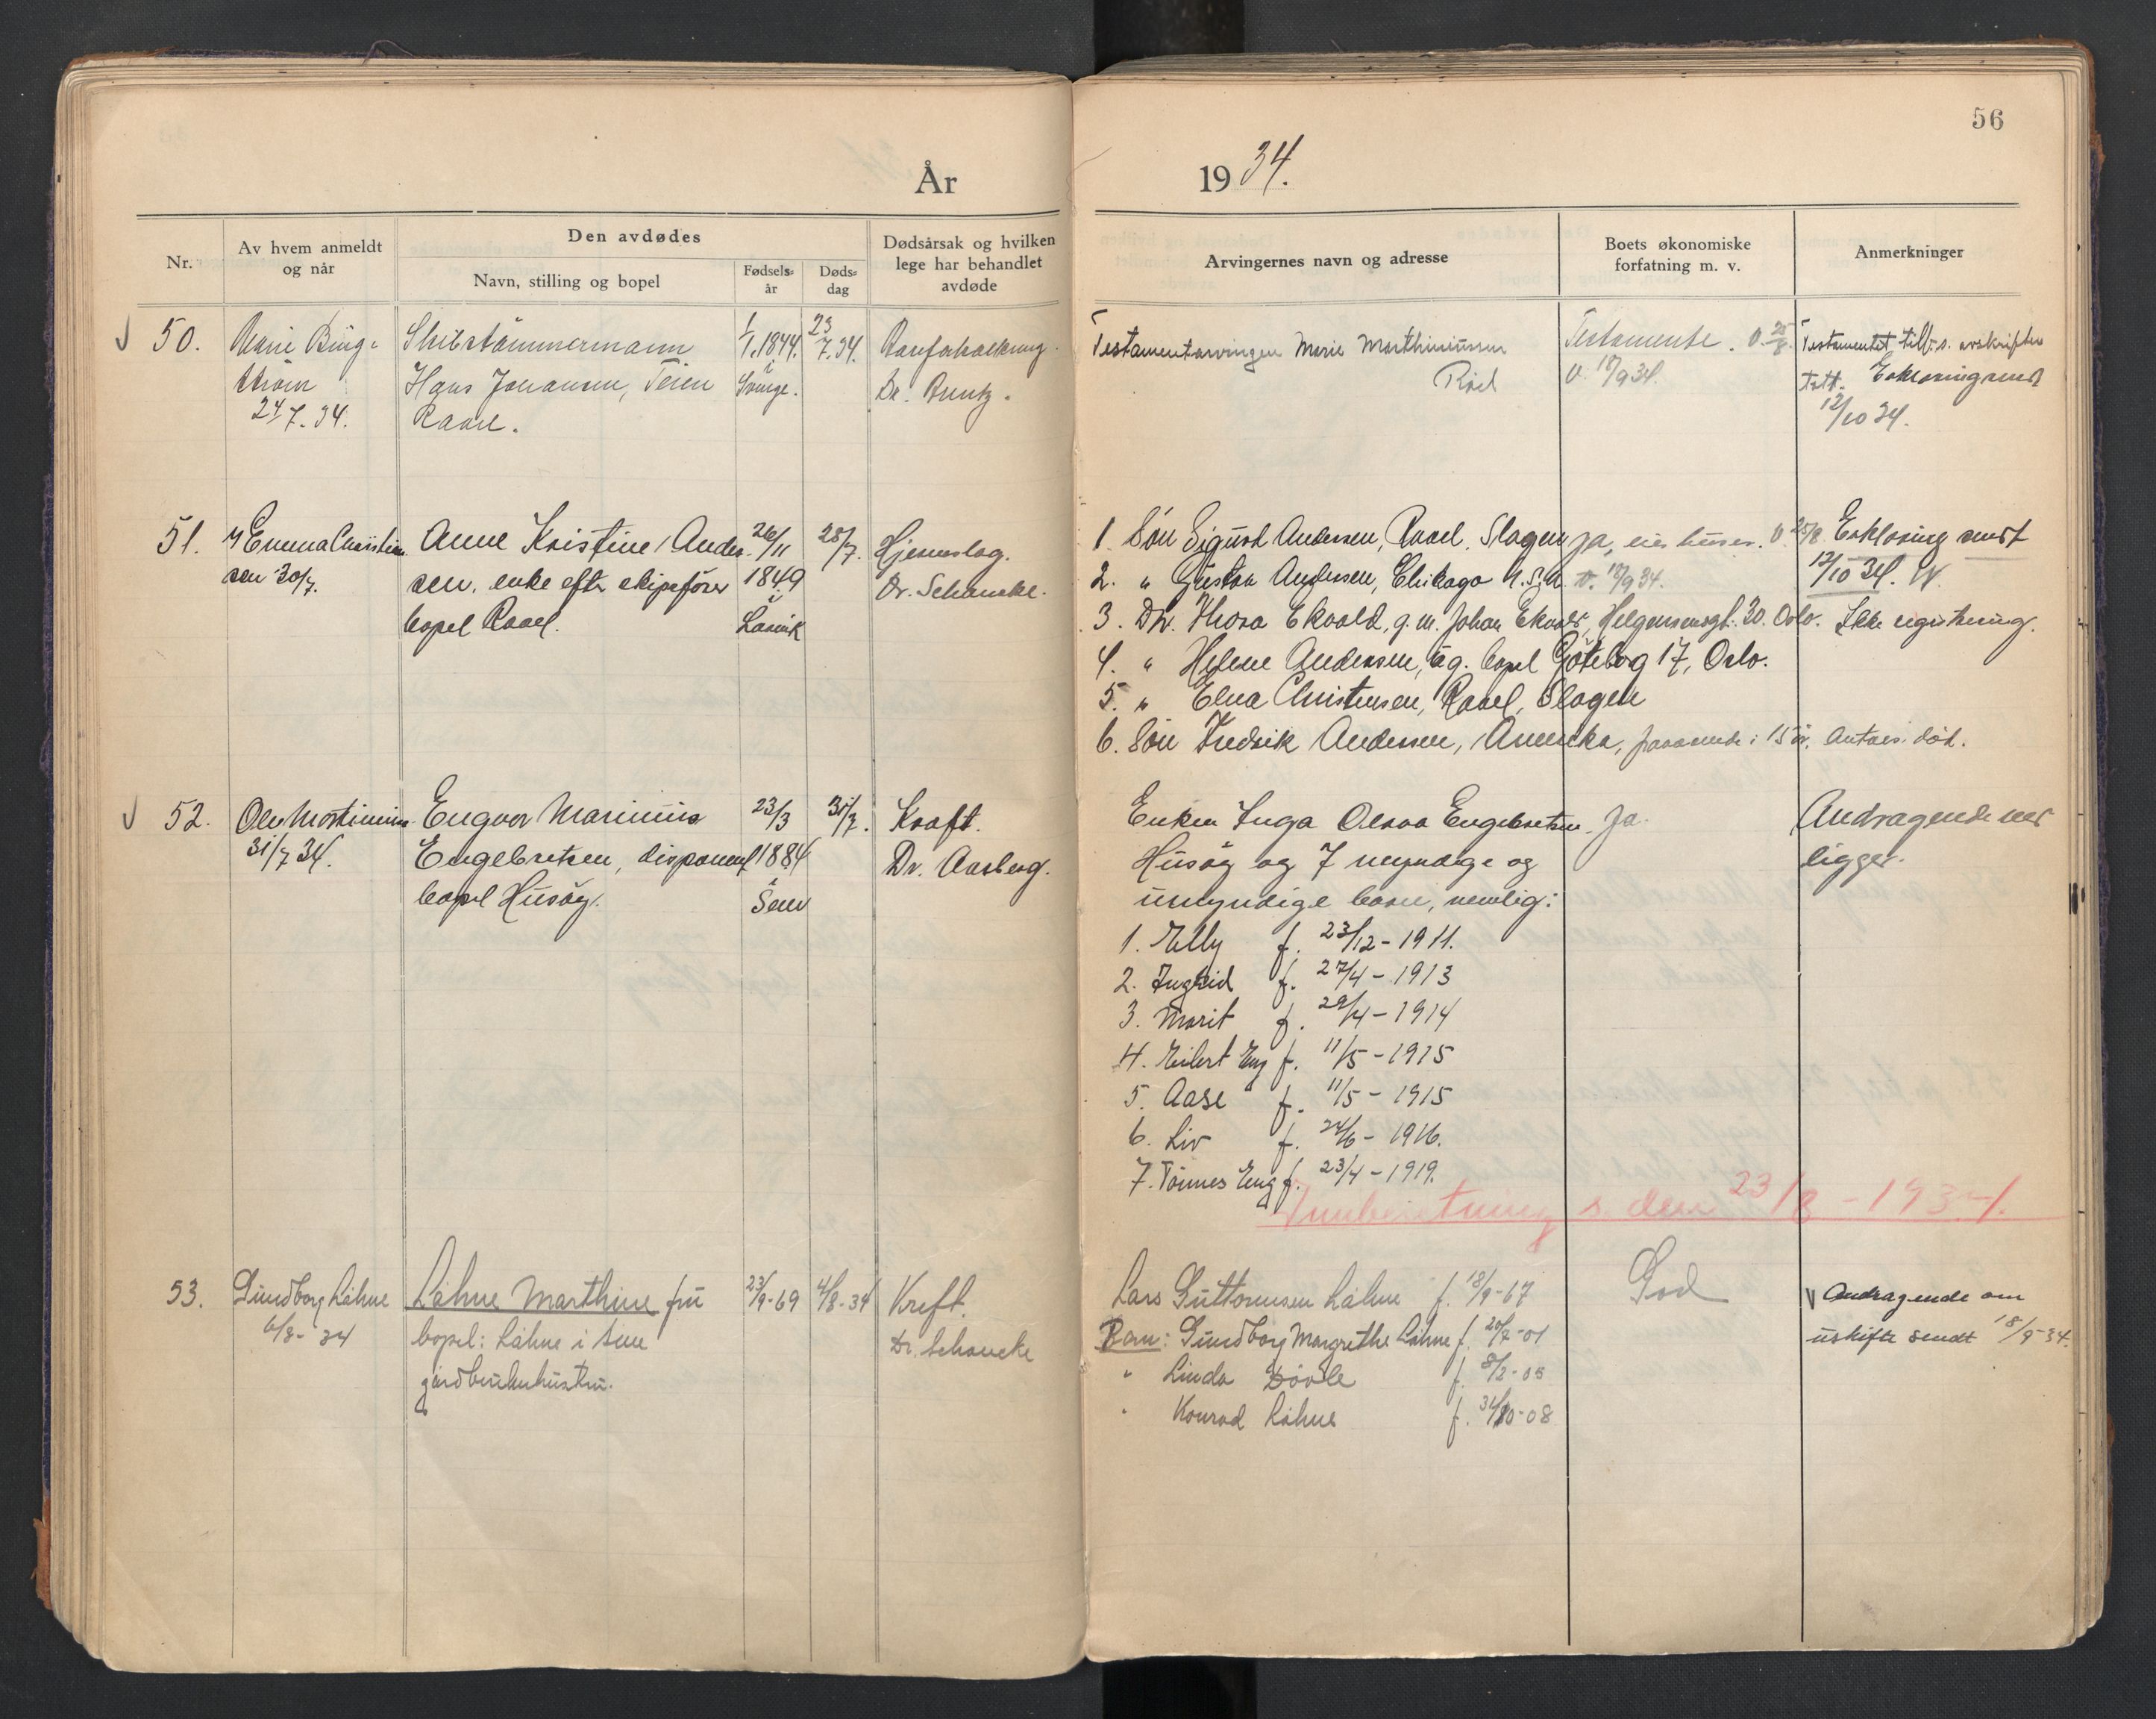 56
År 1934.
Nr.
Av hvem anmeldt og når
Den avdødes
Navn, stilling og bopel
Fødsels-år
Døds-dag
Dødsårsak og hvilken lege har behandlet avdøde
Arvingernes navn og adresse
Boets økonomiske forfatning m. v.
Anmerkninger
50.
24/7.34.
Hans Johansen, Teien
1/1.1844.
23/7.34.
Dr.
Testamentarvingen Marie Marthiniussen
Testamente.
17/9 34.
Testamentet avskrifter
tatt. Erklæring sendt
12/10 34.
51.
Emma Christen
sen 30/7.
Anne Kristine Ander-
sen, enke efter skipsfører
bopel Råel.
26/11
1849
Larvik
28/7.
Hjerneslag.
Dr. Schancke.
1. Søn Sigurd Andersen, Råel, Slagen ja, eier huset. 25/8 Erklæring sendt
2. " Gustav Andersen, Chikago U.S.A. 17/9 34. 12/10 34.
3. Dtr. Thora Ekvold, g.m. Johan Ekvold, Helgesensgt. 30. Oslo. Ikke registrering.
4. " Helene Andersen, ug. bopel Göteborg 17, Oslo.
5. " Elna Christensen, Råel, Slagen
6. Søn Fredrik Andersen, Amerika, fraværende i 15 år. Antaes død.
52.
31/7 34.
Engvor Marinius
Engebretsen, disponent
bopel Husøy.
23/3
1884
Sem
31/7.
Kræft.
Dr. Aasberg.
Enken Inga Olava Engebretsen Ja.
Husøy og 7 myndige og
umyndige barn, nemlig:
1. Elly f. 23/12 - 1911.
2. Ingrid f. 27/4 - 1913
3. Marit f. 29/4 - 1914
4. Eilert Eng f. 11/5 - 1915
5. Aase f. 11/5 - 1915
6. Liv f. 24/6 - 1916.
7. Tønnes Eng f. 23/4 - 1919.
Andragende ved
ligger.
Innberetning s. den 23/8 - 1934.
53.
Gundborg Låhne
6/8-34
Låhne Marthine fru
bopel: Låhne i Sem
gårdbrukerhustru.
23/9-69
4/8-34
Kreft.
Dr. Schancke
Lars Guttormsen Låhne f. 18/9-67
Barn: Gundborg Margrethe Låhne f. 20/7-01
" Linda f. 8/2-05
" Konrad Låhne f. 31/10-08
God
Andragende om
uskifte sendt 18/9-34.